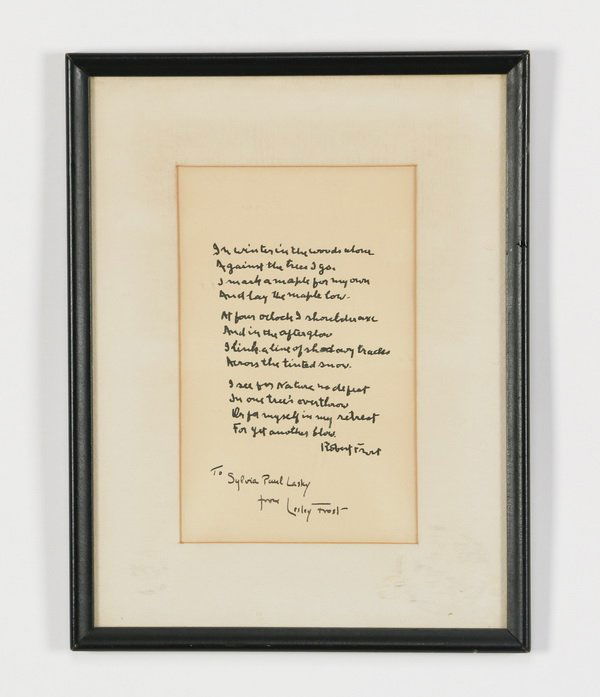 In winter in the woods alone
Against the trees I go.
I mark a maple for my own
And lay the maple low.
At four oclock I shoulder axe
And in the afterglow
I link a line of shadowy tracks
Across the tinted snow.
I see for Nature no defeat
In one tree's overthrow
Or for myself in my retreat
For yet another blow.
Robert Frost
To Sylvia Paul Lasky
from Lesley Frost